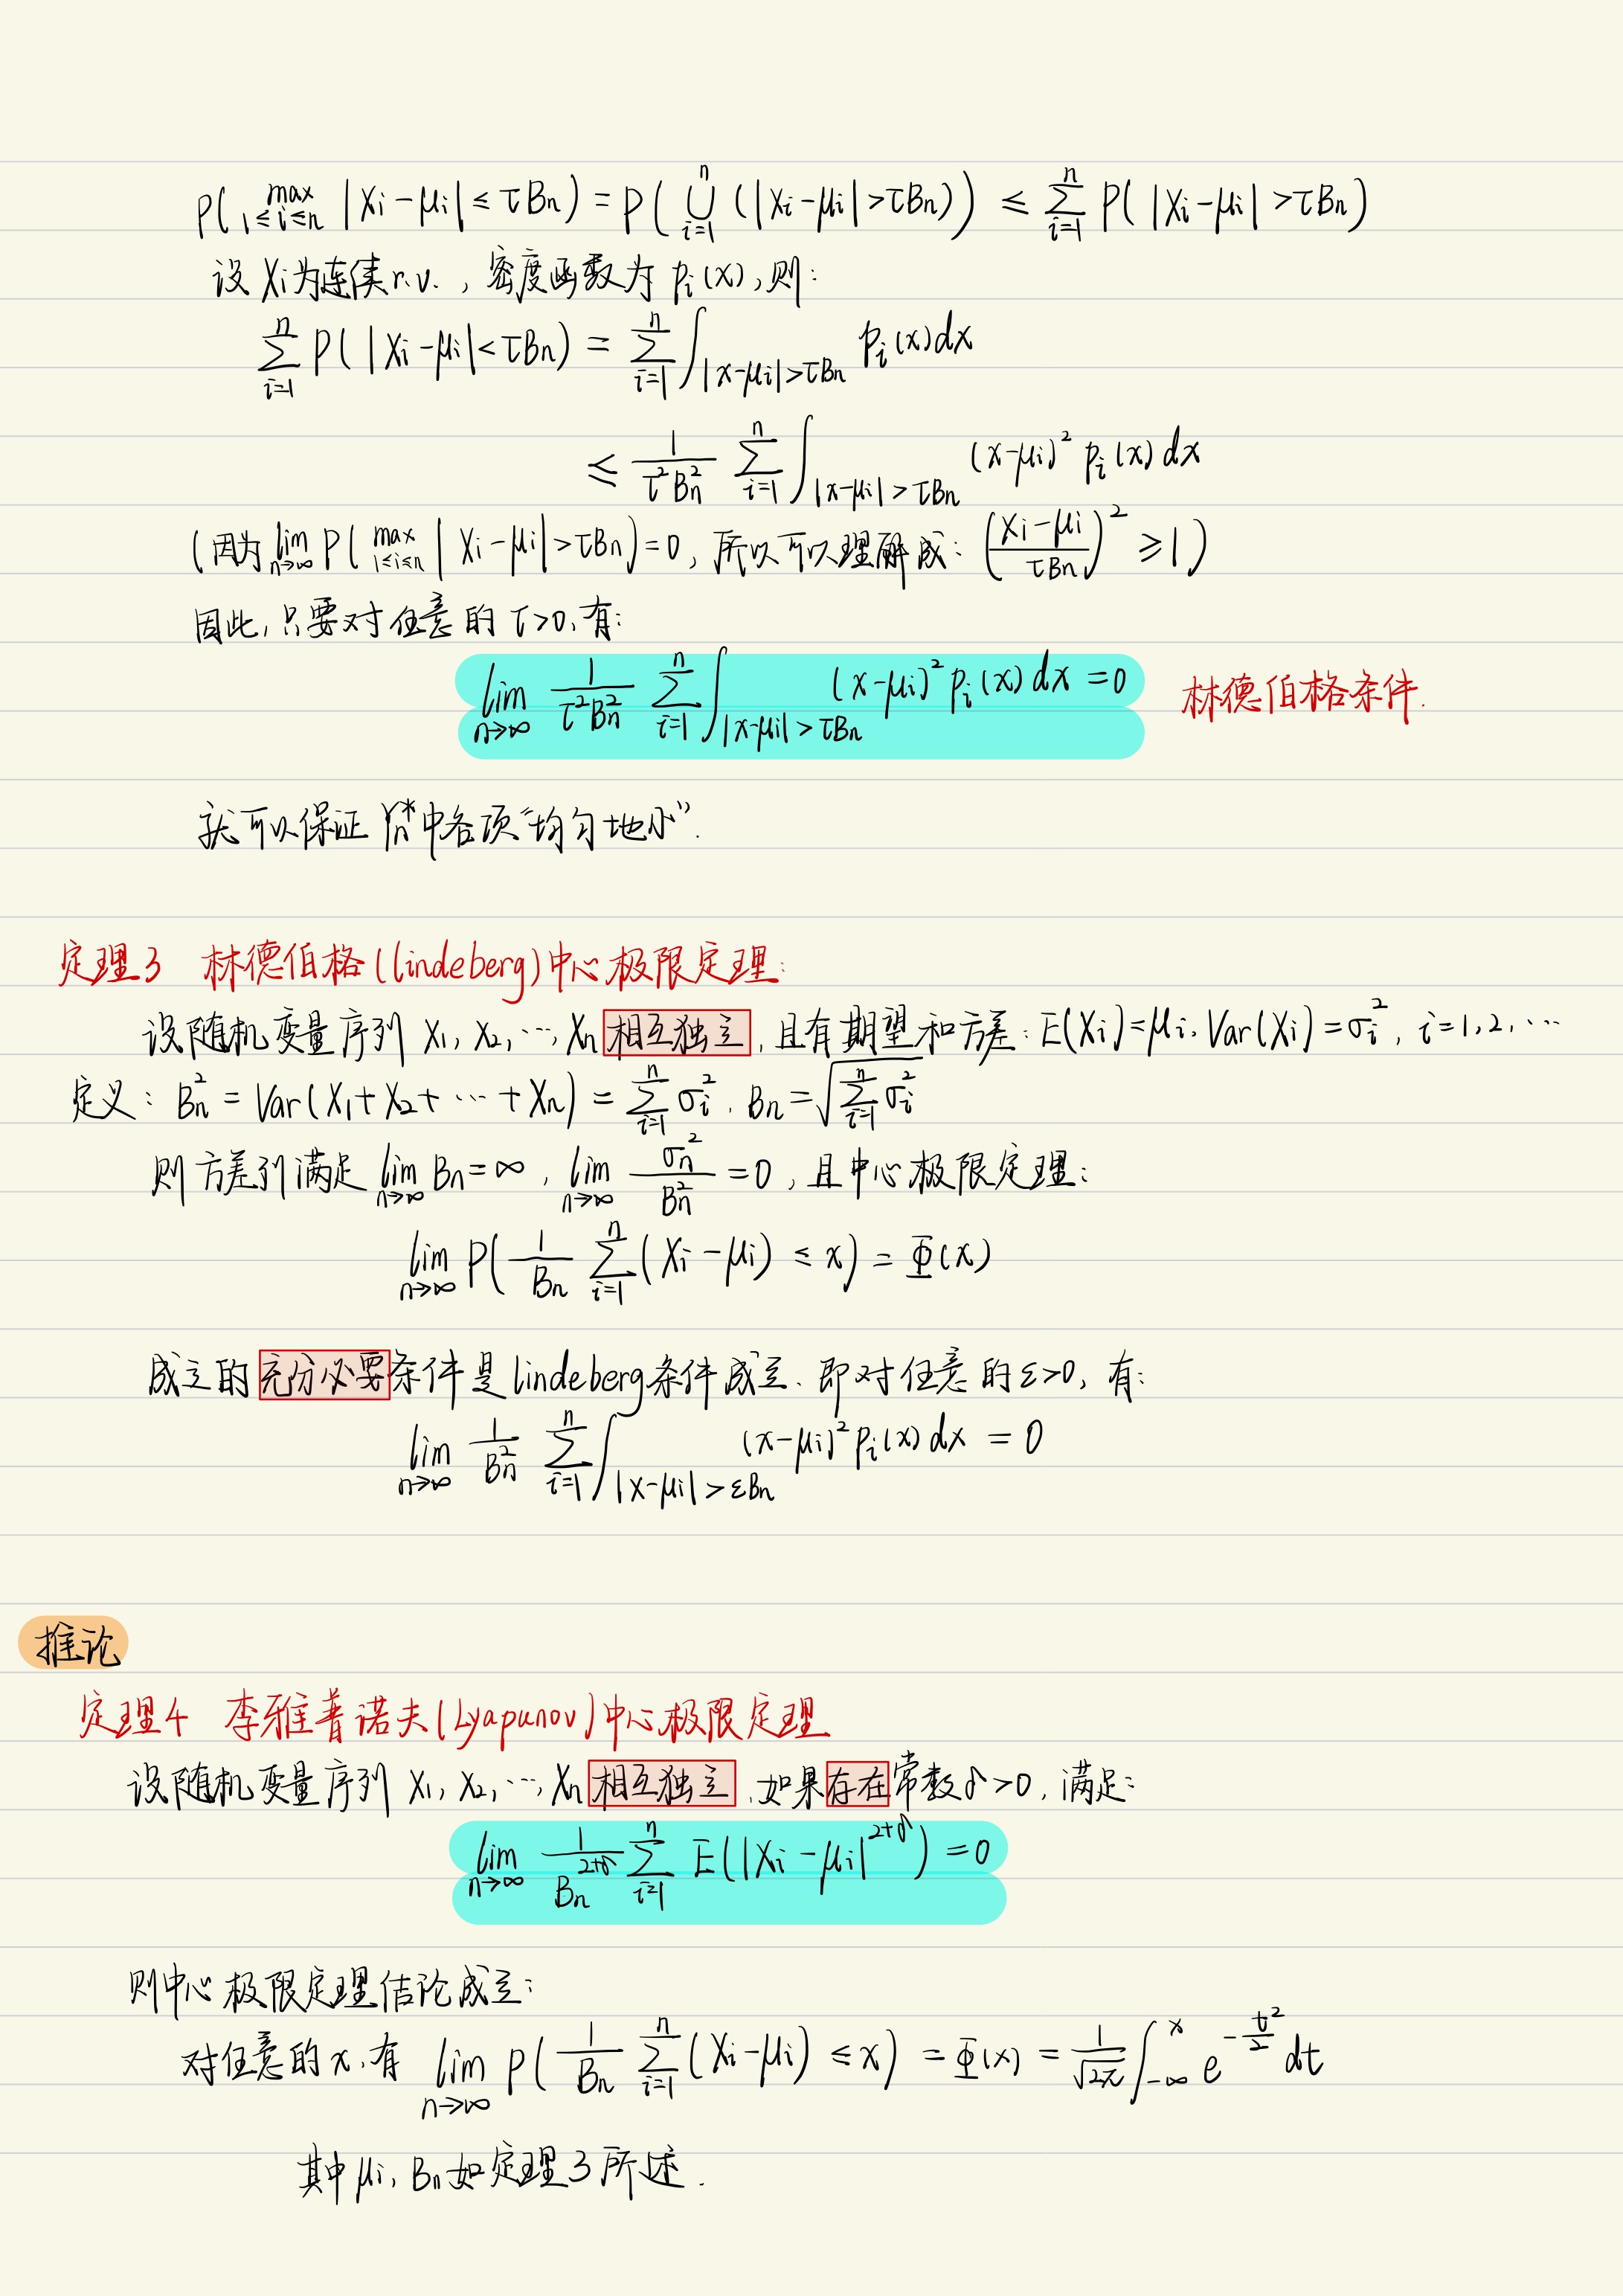 P( max_{1≤i≤n} |Xi-μi| ≤ τBn) = P( ⋃_{i=1}^{n} (|Xi-μi|>τBn)) ≤ ∑_{i=1}^{n} P( |Xi-μi| >τBn)
设 Xi为连续r.v. , 密度函数为 p_i(x),则:
∑_{i=1}^{n} P( |Xi-μi|<τBn) = ∑_{i=1}^{n} ∫_{|x-μi|>τBn} p_i(x)dx
≤ \frac{1}{τ²Bn²} ∑_{i=1}^{n} ∫_{|x-μi|>τBn} (x-μi)² p_i(x) dx
(因为 lim_{n→∞} P( max_{1≤i≤n} | Xi-μi|>τBn)=0, 所以可以理解成: (\frac{Xi-μi}{τBn})² ≥1)
因此,只要对任意的 τ>0,有:
lim_{n→∞} \frac{1}{τ²Bn²} ∑_{i=1}^{n} ∫_{|x-μi|>τBn} (x-μi)² p_i(x) dx =0 林德伯格条件.
就可以保证 Yn*中各项“均匀地小”.
定理3 林德伯格(lindeberg)中心极限定理:
设随机变量序列 X1, X2, ···, Xn 相互独立, 且有期望和方差: E(Xi)=μi, Var(Xi)=σi², i=1,2,···
定义: Bn² = Var(X1+X2+ ··· +Xn) = ∑_{i=1}^{n} σi², Bn=\sqrt{∑_{i=1}^{n} σi²}
则方差列满足 lim_{n→∞} Bn=∞, lim_{n→∞} \frac{σn²}{Bn²} =0, 且中心极限定理:
lim_{n→∞} P( \frac{1}{Bn} ∑_{i=1}^{n} (Xi-μi) ≤ x) = Φ(x)
成立的充分必要条件是lindeberg条件成立、即对任意的ε>0, 有:
lim_{n→∞} \frac{1}{Bn²} ∑_{i=1}^{n} ∫_{|x-μi|>εBn} (x-μi)² p_i(x) dx = 0
推论
定理4 李雅普诺夫(Lyapunov)中心极限定理
设随机变量序列 X1, X2, ···, Xn 相互独立, 如果存在常数δ>0, 满足:
lim_{n→∞} \frac{1}{Bn^{2+δ}} ∑_{i=1}^{n} E(|Xi-μi|^{2+δ}) =0
则中心极限定理结论成立:
对任意的 x,有 lim_{n→∞} P( \frac{1}{Bn} ∑_{i=1}^{n} (Xi-μi) ≤x) = Φ(x) = \frac{1}{\sqrt{2π}} ∫_{-∞}^{x} e^{-\frac{t²}{2}} dt
其中 μi, Bn如定理3所述.